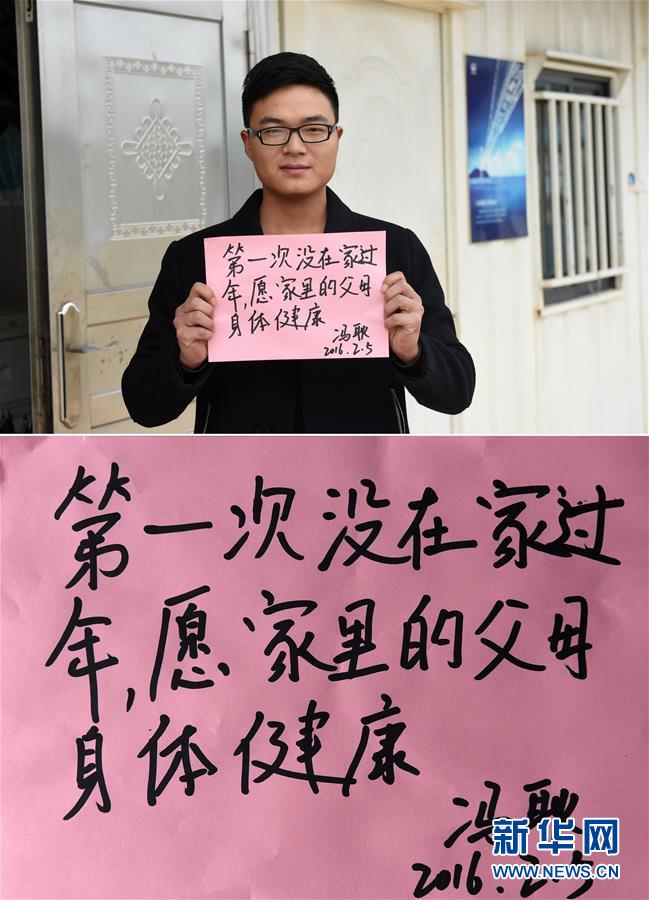 第一次没在家过
年,愿家里的父母
身体健康
冯耿
2016.2.5
第一次没在家过
年,愿家里的父母
身体健康
冯耿
2016.2.5
新华网
WWW.NEWS.CN